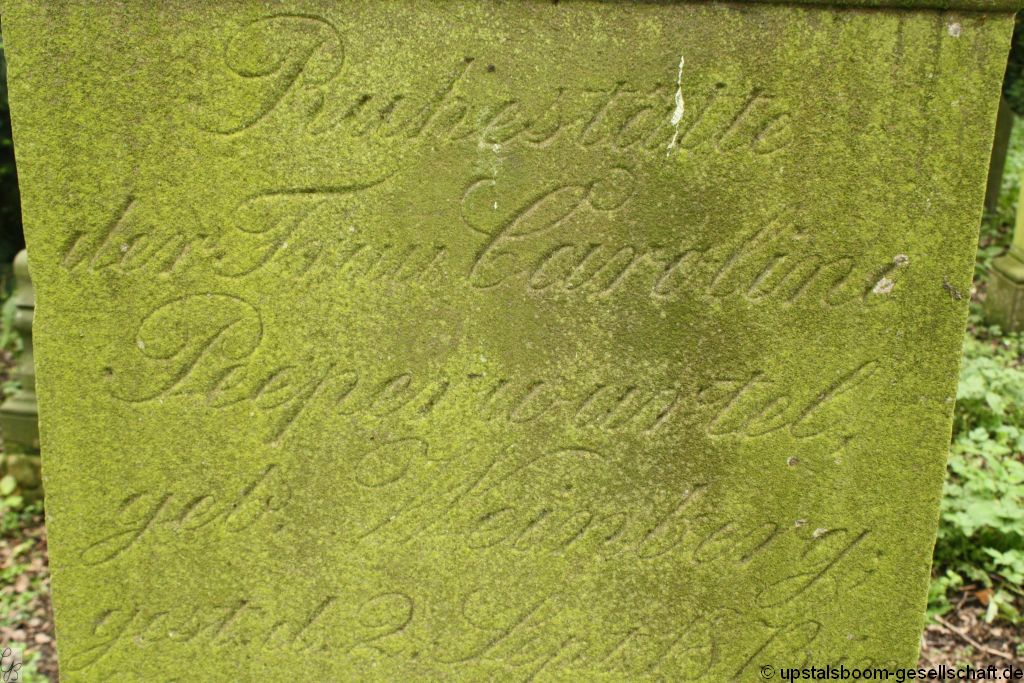 Ruhestätte
der Frau Carolina
geb. Weinberg,
gest. d. 2. Sept.
© upstalsboom-gesellschaft.de